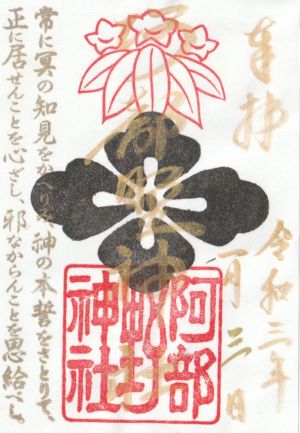 奉拝
令和二年
一月三日
阿部
野
神社
常に冥の知見をかへりみ、神の本誓をさとりて、
正に居せんことを心ざし、邪なからんことを思給べし。